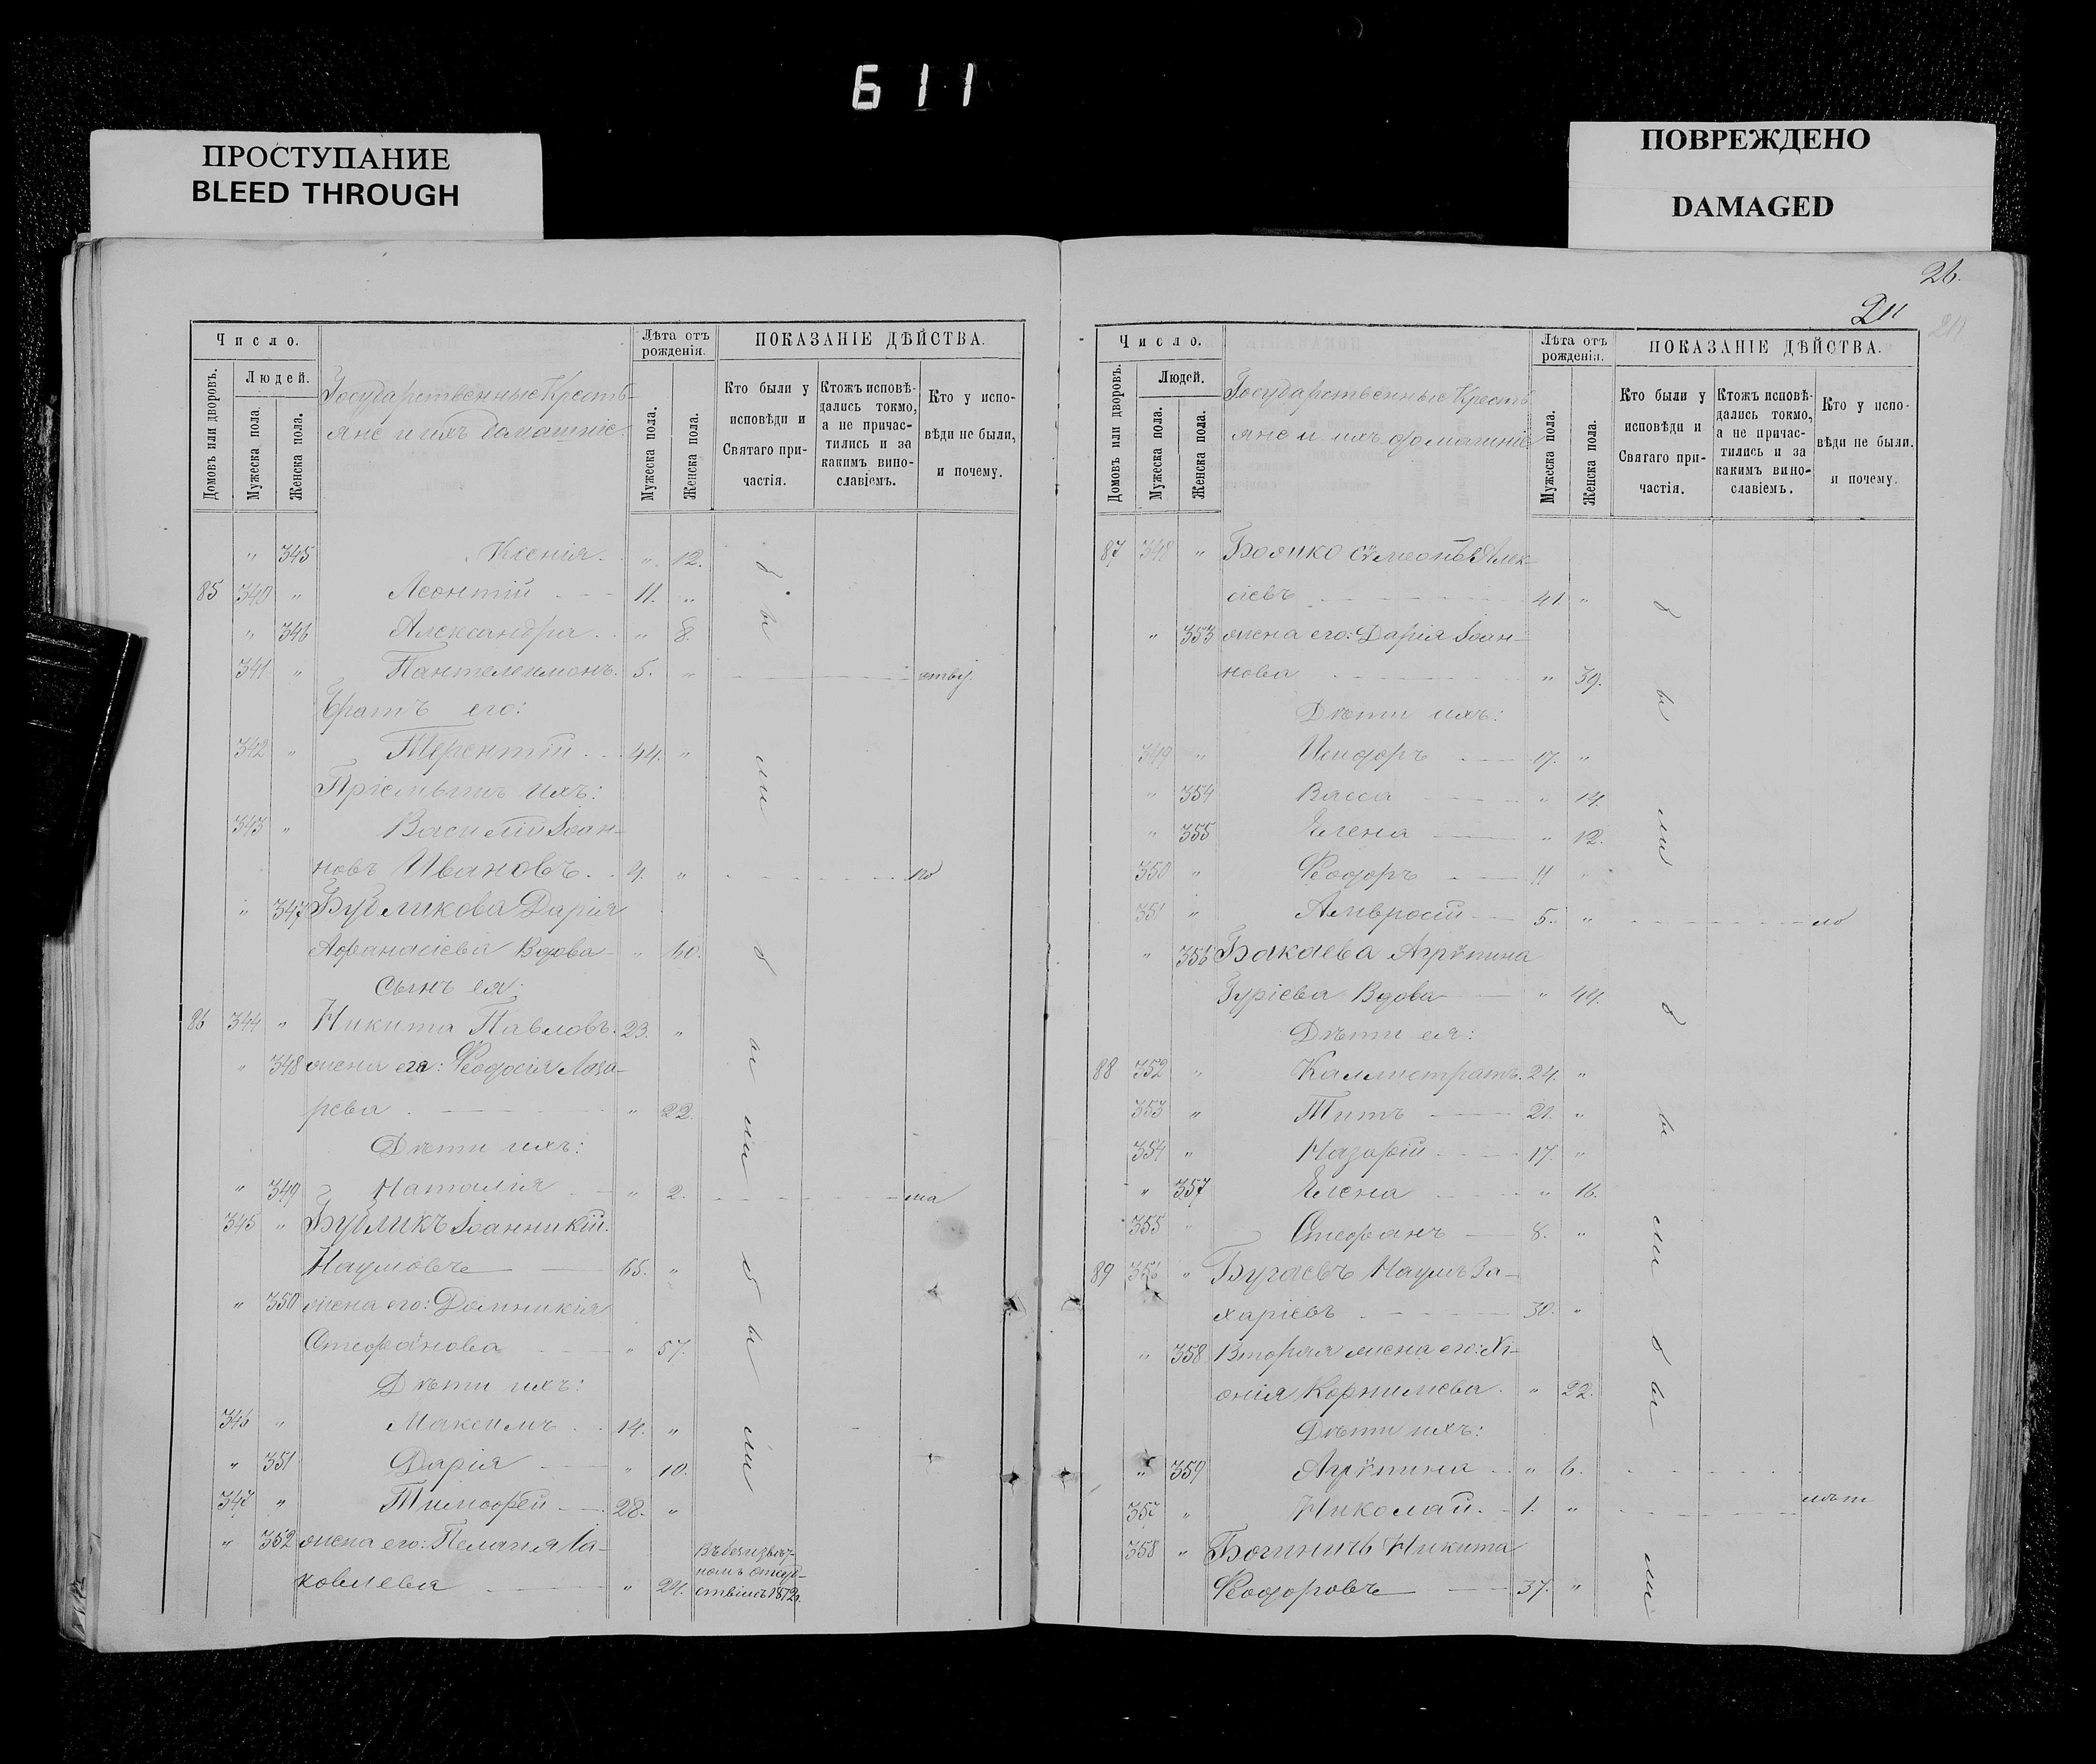 611
ПРОСТУПАНИЕ
BLEED THROUGH
ПОВРЕЖДЕНО
DAMAGED
Число.
Людей.
Домовъ или дворовъ.
Мужеска пола.
Женска пола.
Государственные Кресть-
яне и ихъ домашніе.
Лѣта отъ
рожденія.
Мужеска пола.
Женска пола.
ПОКАЗАНІЕ ДѢЙСТВА.
Кто были у
исповѣди и
Святаго при-
частія.
Ктожъ исповѣ-
дались токмо,
а не причас-
тились и за
какимъ вино-
славіемъ.
Кто у испо-
вѣди не были,
и почему.
" 345 Ксенія. " 12.
85 340 " Леонтій 11. "
" 346 Александра " 8.
341 " Пантелеимонъ. 5. "
Братъ его:
342 " Терентій 44. "
Пріемышъ ихъ:
343 " Василій Іоан-
новъ Ивановъ 4. " по
" 347 Бубликова Дарія
Афанасіева Вдова " 60.
Сынъ ея:
86 344 " Никита Павловъ. 23. "
" 348 жена его: Ѳеодосія Лаза-
рева " 22.
Дѣти ихъ:
" 349 Наталія " 2. ма
345 " Бубликъ Іоанникій
Наумовъ 65. "
" 350 жена его: Домникія
Стефанова " 57.
Дѣти ихъ:
346 " Максимъ 14. "
" 351 Дарія " 10.
347 " Тимофей 28. "
" 352 жена его: Пелагія Іа-
ковлева " 24.
Въ безъизвѣст-
номъ отсут-
ствіи съ 1872 г.
были
были
были
26.
Число.
Людей.
Домовъ или дворовъ.
Мужеска пола.
Женска пола.
Государственные Кресть-
яне и ихъ домашніе
Лѣта отъ
рожденія.
Мужеска пола.
Женска пола.
ПОКАЗАНІЕ ДѢЙСТВА.
Кто были у
исповѣди и
Святаго при-
частія.
Ктожъ исповѣ-
дались токмо,
а не причас-
тились и за
какимъ вино-
славіемъ.
Кто у испо-
вѣди не были.
и почему.
87 348 " Божко Сѵмеонъ Алек-
сіевъ 41. "
" 353 жена его: Дарія Іоан-
нова " 39.
Дѣти ихъ:
349 " Исидоръ 17. "
" 354 Васса " 14.
" 355 Елена " 12.
350 " Ѳеодоръ 11 "
351 " Амвросій 5. " мо
" 356 Бакаева Агрѵпина
Гуріева Вдова " 44.
Дѣти ея:
88 352 " Каллистратъ. 24. "
353 " Титъ 21. "
354 " Назарій 17. "
" 357 Елена " 16.
355 " Стефанъ 8. "
89 356 " Бугаевъ Наумъ За-
харіевъ 30. "
" 358 Вторая жена его: Хі-
онія Корниліева. " 22.
Дѣти ихъ:
" 359 Агрѵпина " 6.
357 " Николай. 1. "
358 " Богиничъ Никита
Ѳеодоровъ 37. "
были
были
были